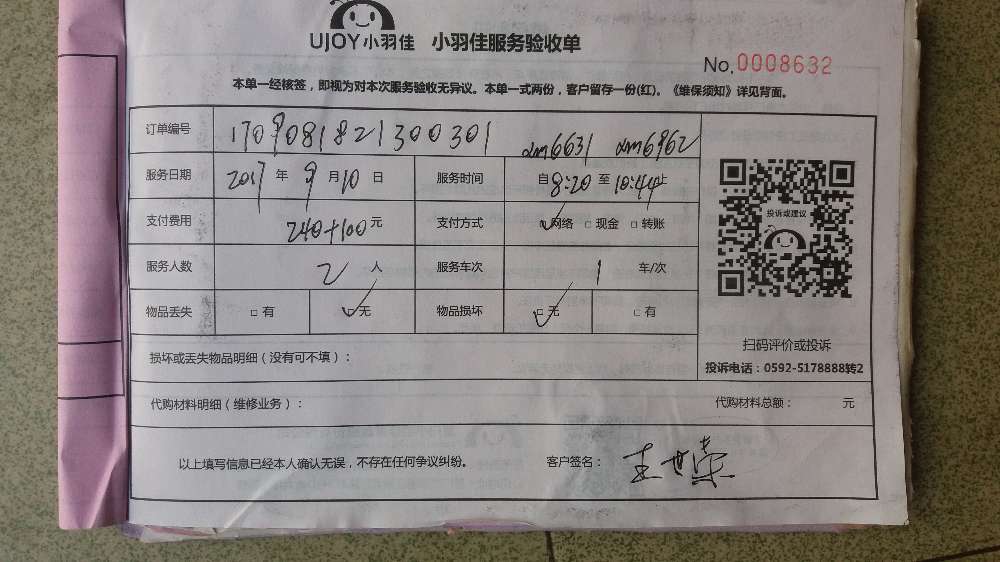 UJOY小羽佳 小羽佳服务验收单
No.0008632
本单一经核签，即视为对本次服务验收无异议。本单一式两份，客户留存一份(红)。《维保须知》详见背面。
订单编号 1709081821300301 dm6631 dm6962
服务日期 2017年9月10日 服务时间 自8:20至10:44止
支付费用 240+100元 支付方式 ☑网络 □现金 □转账
服务人数 2人 服务车次 1车/次
物品丢失 □有 ☑无 物品损坏 ☑无 □有
投诉或建议
扫码评价或投诉
投诉电话：0592-5178888转2
损坏或丢失物品明细（没有可不填）：
代购材料明细（维修业务）： 代购材料总额： 元
以上填写信息已经本人确认无误，不存在任何争议纠纷。 客户签名：王世荣